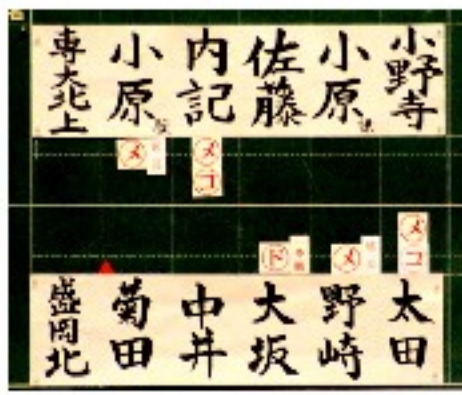 小野寺
小原
佐藤
内記
小原
専大北上
メコ
メ
メコ
メ
ド
太田
野崎
大坂
中井
菊田
盛岡北